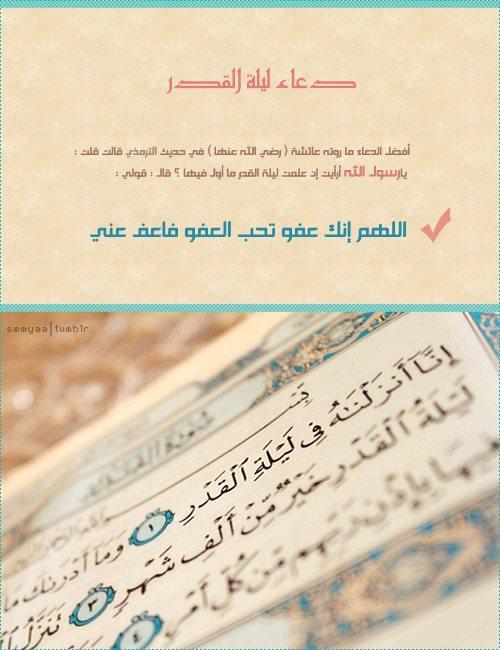 دعاء ليلة القدر
أفضل الدعاء ما روته عائشة ( رضي الله عنها ) في حديث الترمذي قالت قلت :
يارسول الله أرأيت إن علمت ليلة القدر ما أول فيها ؟ قال : قولي :
اللهم إنك عفو تحب العفو فاعف عني
semyaa|tumblr
سورة القدر
إِنَّا أَنزَلْنَٰهُ فِى لَيْلَةِ ٱلْقَدْرِ ١ وَمَا أَدْرَىٰكَ مَا
لَيْلَةُ ٱلْقَدْرِ خَيْرٌ مِّنْ أَلْفِ شَهْرٍ ٣ تَنَزَّلُ
فِيهَا بِإِذْنِ رَبِّهِم مِّن كُلِّ أَمْرٍ ٤